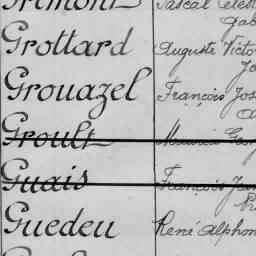 Grottard Auguste Victo
Grouazel François Jos
Groult Maurice Geo
Guais François Jea
Guedeu René Alphon